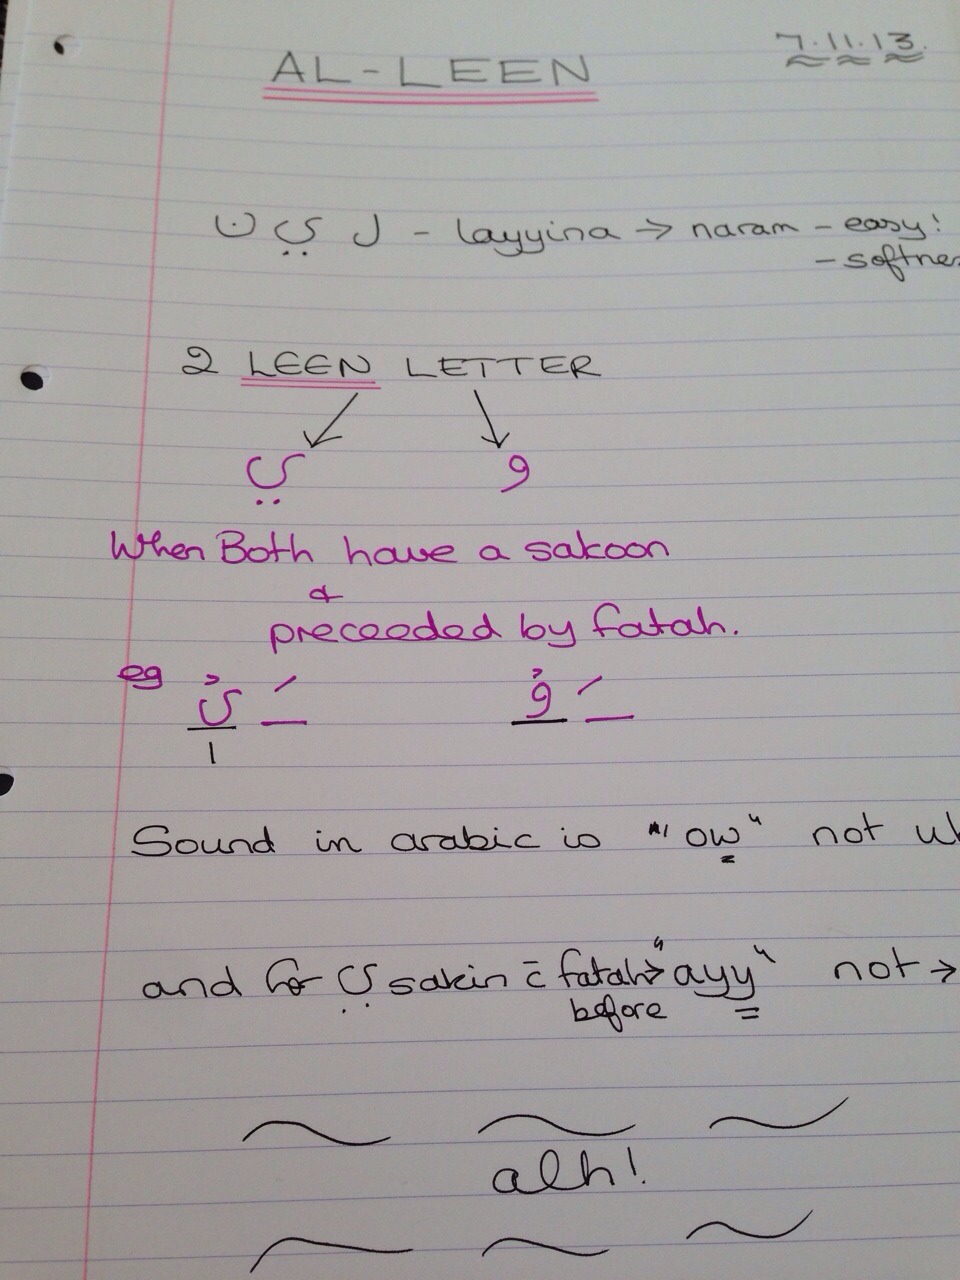 AL-LEEN
7.11.13.
ل ي ن - layyina → naram - easy!
- softnes
2 LEEN LETTER
ي و
When Both have a sakoon
&
preceeded by fatah.
eg يْ َ وْ َ
Sound in arabic is "ow" not
and for ي sakin c̄ fatah → "ayy" not →
before
alh!